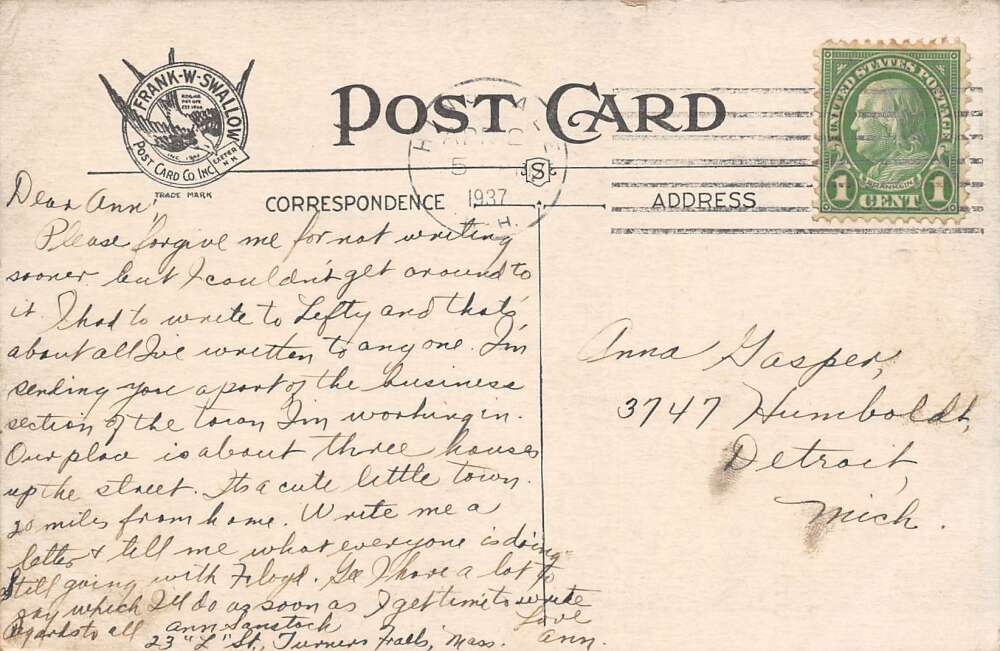 FRANK-W-SWALLOW
POST CARD CO. INC.
EXETER N.H.
TRADE MARK
POST CARD
S
CORRESPONDENCE
ADDRESS
1937
H.
UNITED STATES POSTAGE
FRANKLIN
1 CENT 1
Dear Ann,
Please forgive me for not writing
sooner but I couldn't get around to
it. I had to write to Lefty and that's
about all I've written to any one. I'm
sending you a part of the business
section of the town I'm working in.
Our place is about three houses
up the street. Its a cute little town.
20 miles from home. Write me a
letter & tell me what everyone is doing
Still going with Floyd. Gee I have a lot to
say which I'll do as soon as I get time to write
Regards to all
Love
Ann.
Ann
23 "L" St., Turners Falls, Mass.
Anna Gasper,
3747 Humboldt,
Detroit,
Mich.